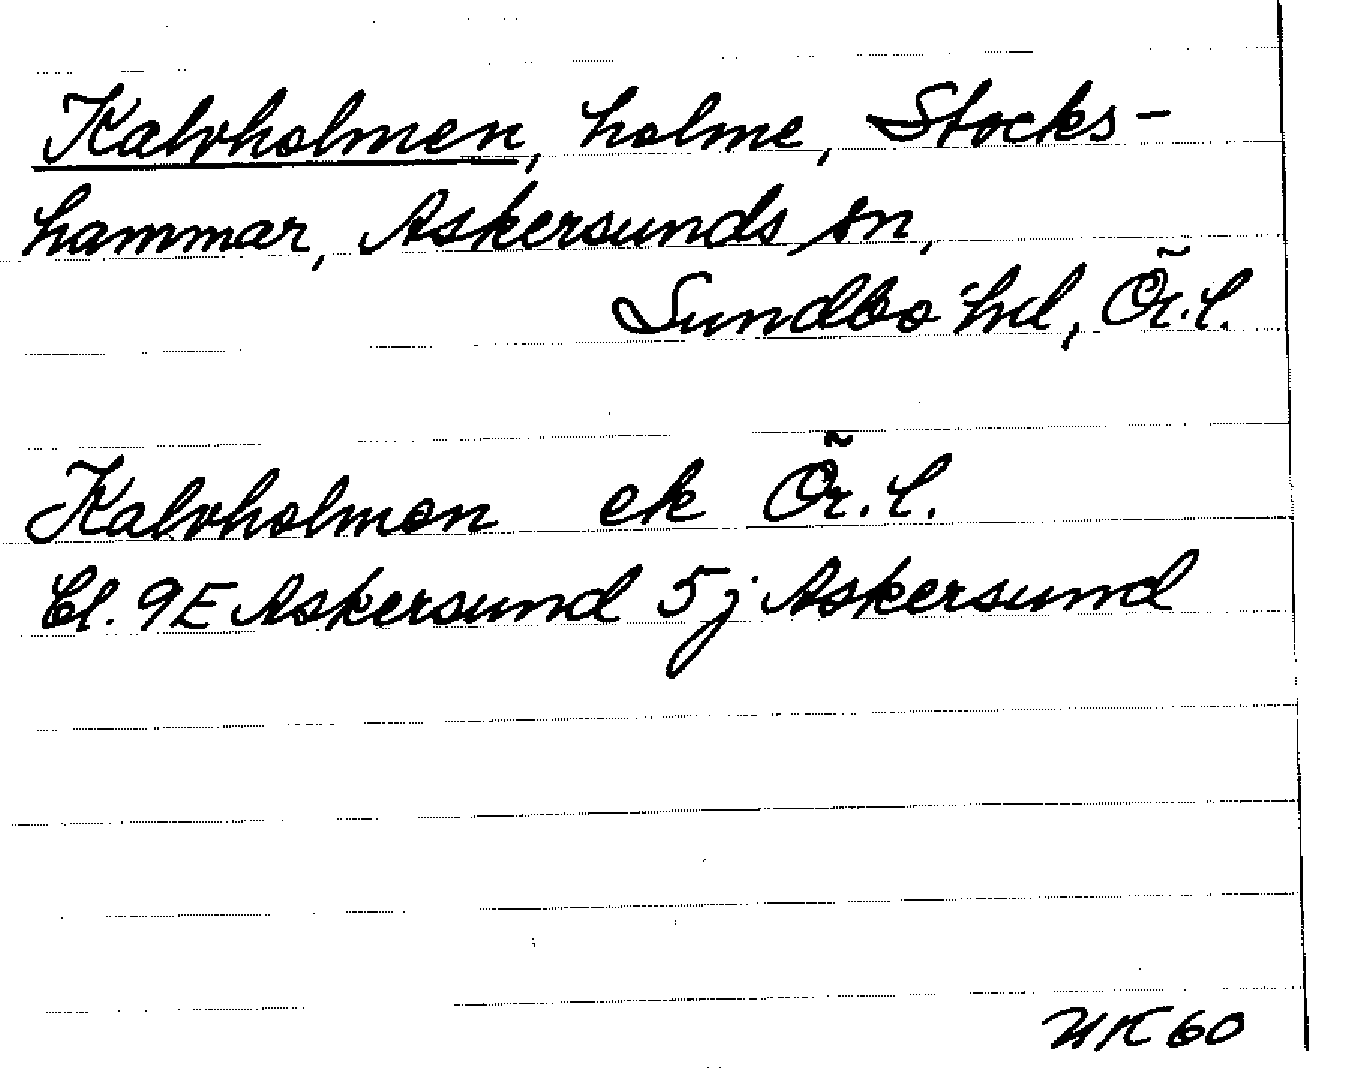 Kalvholmen, holme, Stocks-
hammar, Askersunds sn,
Sundbo hd, Ör. l.
Kalvholmen ek Ör. l.
Bl. 9E Askersund 5j Askersund
UK 60